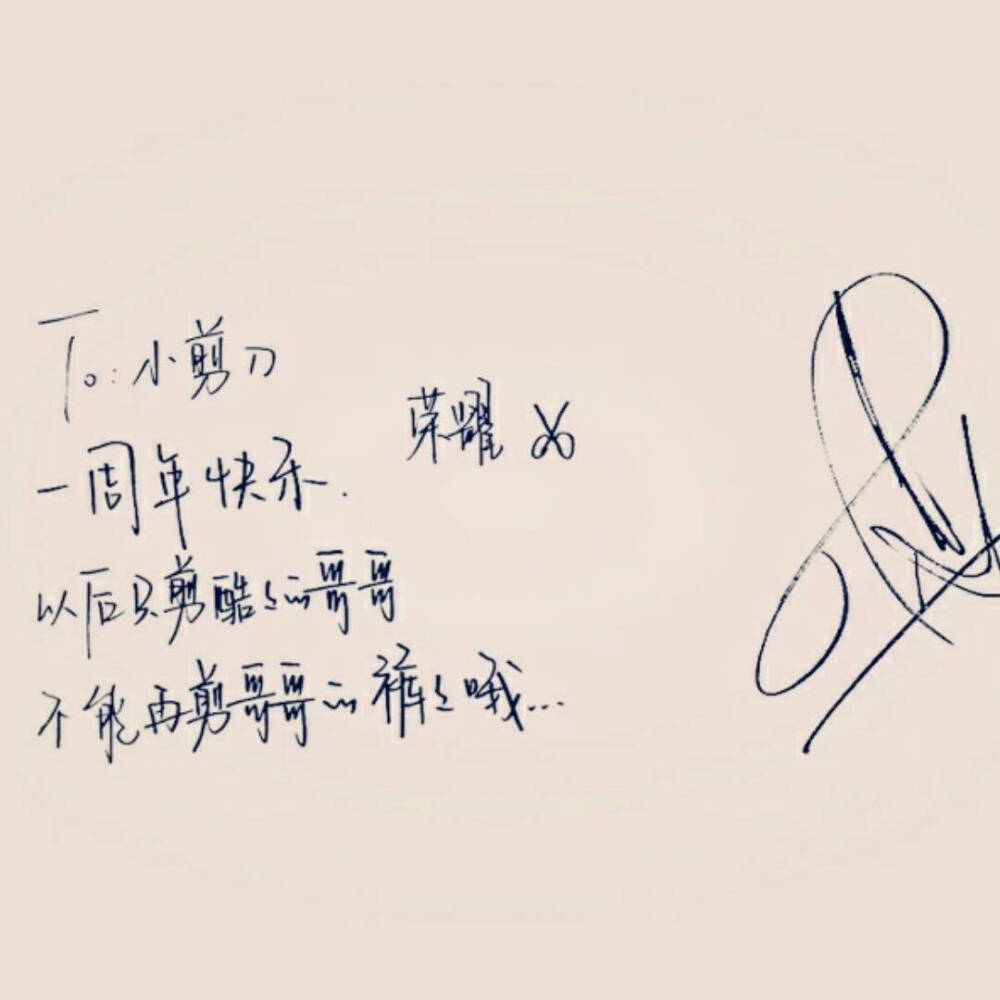 To:小剪刀
荣耀
一周年快乐.
以后只剪酷酷的哥哥
不能再剪哥哥的裤裤哦...